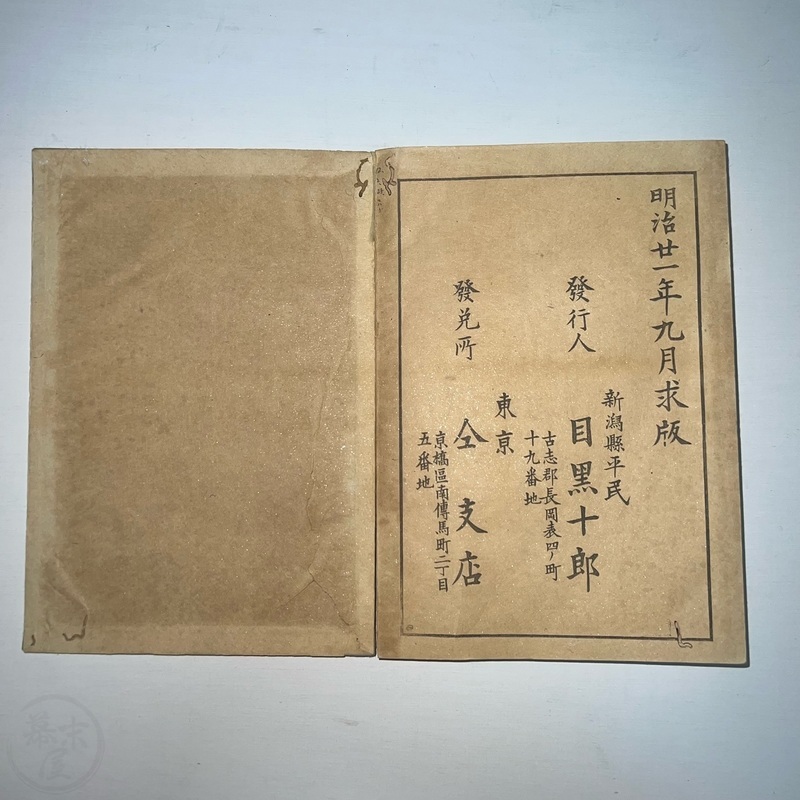 明治廿一年九月求版
新潟縣平民
發行人 目黒十郎
古志郡長岡表四ノ町
十九番地
東京
發兌所 仝支店
京橋區南傳馬町二丁目
五番地
幕末屋